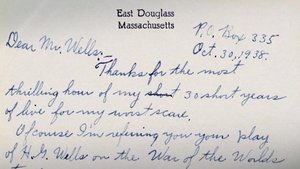 East Douglass
Massachusetts
P.O. Box 335
Oct. 30, 1938.
Dear Mr. Wells:-
Thanks for the most
thrilling hour of my short 30 short years
of live for my worst scare.
Ofcourse I'm refering you your play
of H.G. Wells on the War of the Worlds